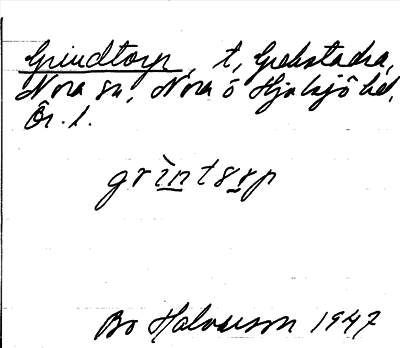 Grindtorp, t, Grekstadra,
Nora sn, Nora o Hjulsjö hd,
Ör. l.
grìntsrp
Bo Halvarson 1947